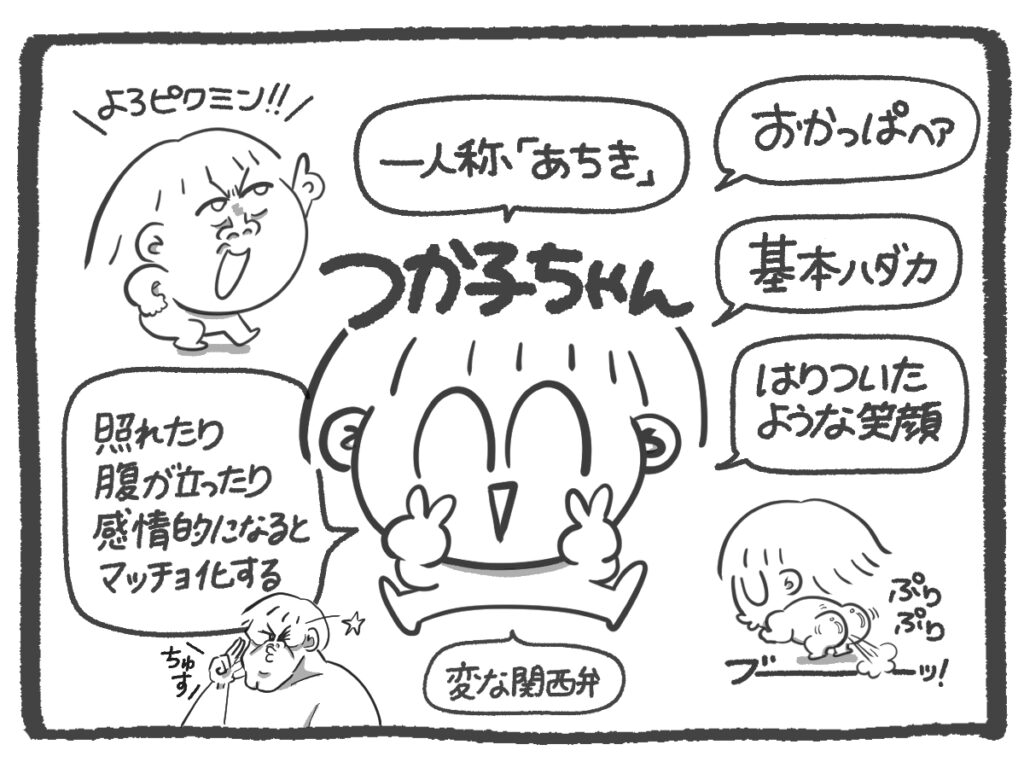 よろピクミン!!
一人称「あちき」
おかっぱヘア
つか子ちゃん
基本ハダカ
はりついた
ような笑顔
照れたり
腹が立ったり
感情的になると
マッチョ化する
ちゅす
変な関西弁
ぷり
ぷり
ブーーッ!